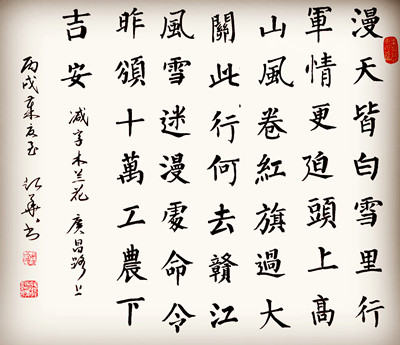 漫天皆白雪里行
軍情更迫頭上高
山風卷紅旗過大
關此行何去贛江
風雪迷漫處命令
昨頒十萬工農下
吉安 减字木兰花 廣昌路上
丙戌